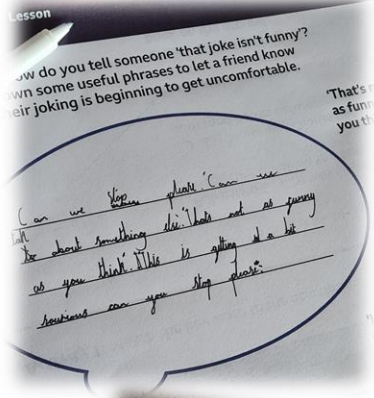 Lesson
ow do you tell someone 'that joke isn't funny'?
own some useful phrases to let a friend know
heir joking is beginning to get uncomfortable.
'That's
as funn
you th
Can we stop please". "Can we
talk about something else". "Thats not as funny
as you think". "This is getting a bit
sourious can you stop please".